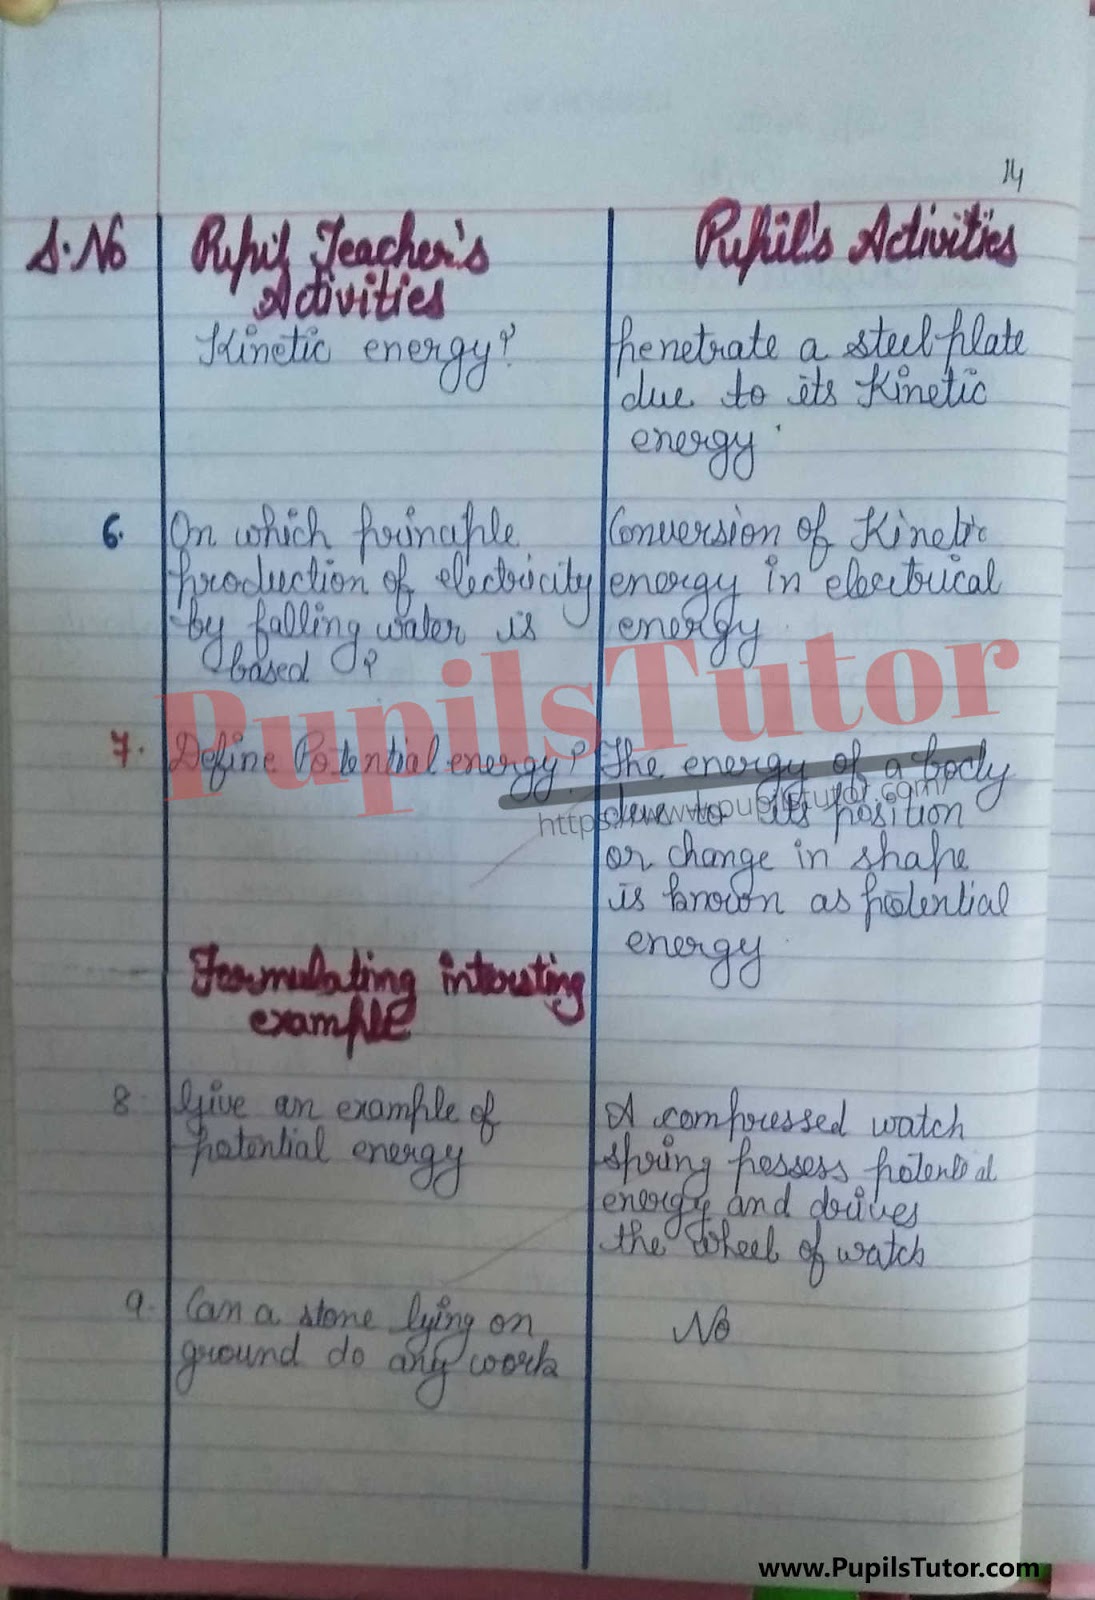 14
S.No
Pupil Teacher's
Activities
Pupil's Activities
Kinetic energy?
penetrate a steel plate
due to its Kinetic
energy.
6.
On which principle
production of electricity
by falling water is
based?
Conversion of Kinetic
energy in electrical
energy
PupilsTutor
7.
Define Potential energy?
The energy of a body
due to its position
or change in shape
is known as potential
energy.
https://www.pupilstutor.com/
Formulating intersting
example
8.
Give an example of
potential energy
A compressed watch
spring possess potential
energy and drives
the wheel of watch
9.
Can a stone lying on
ground do any work
No
www.PupilsTutor.com